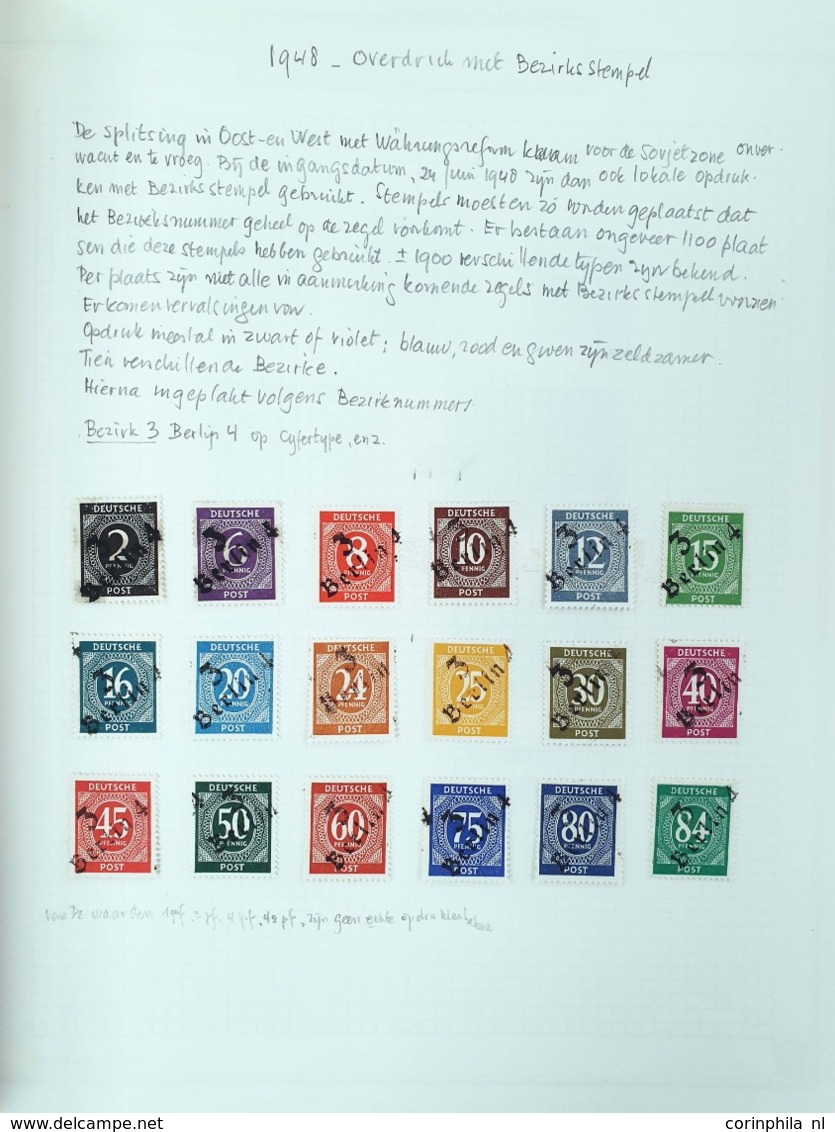 1948 - Overdruk met Bezirksstempel
De splitsing in Oost-en West met Währungsreform kwam voor de Sovjetzone onver-
wacht en te vroeg. Bij de ingangsdatum, 24 juni 1948 zijn dan ook lokale opdruk-
ken met Bezirksstempel gebruikt. Stempels moesten zó worden geplaatst dat
het Bezirksnummer geheel op de zegel voorkomt. Er bestaan ongeveer 1100 plaat
sen die deze stempels hebben gebruikt. ± 1900 verschillende typen zijn bekend.
Per plaats zijn niet alle in aanmerking komende zegels met Bezirksstempel voorzien
Er komen vervalsingen voor.
Opdruk meestal in zwart of violet; blauw, rood en groen zijn zeldzamer.
Tien verschillende Bezirke.
Hierna ingeplakt volgens Bezirknummers.
Bezirk 3 Berlijn 4 op cyfertype, enz.
DEUTSCHE 2 PFENNIG POST 3 Berlin 4
DEUTSCHE 6 PFENNIG POST 3 Berlin 4
DEUTSCHE 8 PFENNIG POST 3 Berlin 4
DEUTSCHE 10 PFENNIG POST 3 Berlin 4
DEUTSCHE 12 PFENNIG POST 3 Berlin 4
DEUTSCHE 15 PFENNIG POST 3 Berlin 4
DEUTSCHE 16 PFENNIG POST 3 Berlin 4
DEUTSCHE 20 PFENNIG POST 3 Berlin 4
DEUTSCHE 24 PFENNIG POST 3 Berlin 4
DEUTSCHE 25 PFENNIG POST 3 Berlin 4
DEUTSCHE 30 PFENNIG POST 3 Berlin 4
DEUTSCHE 40 PFENNIG POST 3 Berlin 4
DEUTSCHE 45 PFENNIG POST 3 Berlin 4
DEUTSCHE 50 PFENNIG POST 3 Berlin 4
DEUTSCHE 60 PFENNIG POST 3 Berlin 4
DEUTSCHE 75 PFENNIG POST 3 Berlin 4
DEUTSCHE 80 PFENNIG POST 3 Berlin 4
DEUTSCHE 84 PFENNIG POST 3 Berlin 4
Van de waarden 1 pf, 3 pf, 4 pf, 42 pf, zijn geen echte opdrukken bekend
www.delcampe.net
corinphila nl